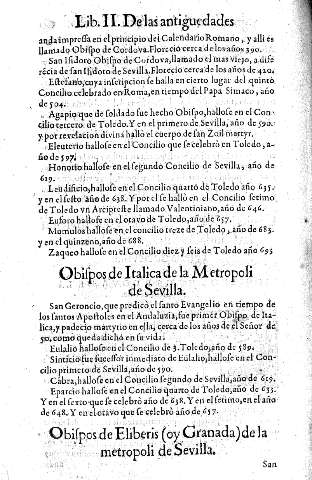 Lib. II. De las antiguedades
anda impressa en el principio del Calendario Romano, y alli es
llamado Obispo de Cordova. Florecio cerca de los años 390.
San Isidoro Obispo de Cordova, llamado el mas viejo, a dife
rẽcia de san Isidoro de Sevilla. Florecio cerca de los años de 420.
Estefano, cuya inscripcion se halla en cierto lugar del quinto
Concilio celebrado en Roma, en tiempo del Papa Simaco, año
de 504.
Agapio que de soldado fue hecho Obispo, hallose en el Con-
cilio tercero de Toledo. Y en el primero de Sevilla, año de 590.
y por revelacion divina halló el cuerpo de san Zoil martyr.
Eleuterio hallose en el Concilio que se celebrò en Toledo, a-
ño de 597.
Honorio hallose en el segundo Concilio de Sevilla, año de
619.
Leudificio, hallose en el Concilio quarto de Toledo año 635.
y en el sesto año de 638. Y por el se hallò en el Concilio setimo
de Toledo vn Arcipreste llamado Valentiniano, año de 646.
Euforo hallose en el otavo de Toledo, año de 657.
Mumulos hallose en el concilio treze de Toledo, año de 683.
y en el quinzeno, año de 688.
Zaqueo hallose en el Concilio diez y seis de Toledo año 693
Obispos de Italica de la Metropoli
de Sevilla.
San Geroncio, que predicó el santo Evangelio en tiempo de
los santos Apostoles en el Andaluzia, fue primer Obispo de Ita-
lica, y padecio martyrio en ella, cerca de los años de el Señor de
50. como queda dicho en su vida.
Eulalio hallose en el Concilio de 3. Toledo, año de 589.
Sinticio fue sucessor inmediato de Eulalio, hallose en el Con-
cilio primero de Sevilla, año de 590.
Cābra, hallose en el Concilio segundo de Sevilla, año de 619.
Eparcio hallose en el Concilio quarto de Toledo, año de 633.
Y en el sexto que se celebró año de 638. Y en el setimo, en el año
de 648. Y en el otavo que se celebrò año de 657.
Obispos de Eliberis (oy Granada) de la
metropoli de Sevilla.
San